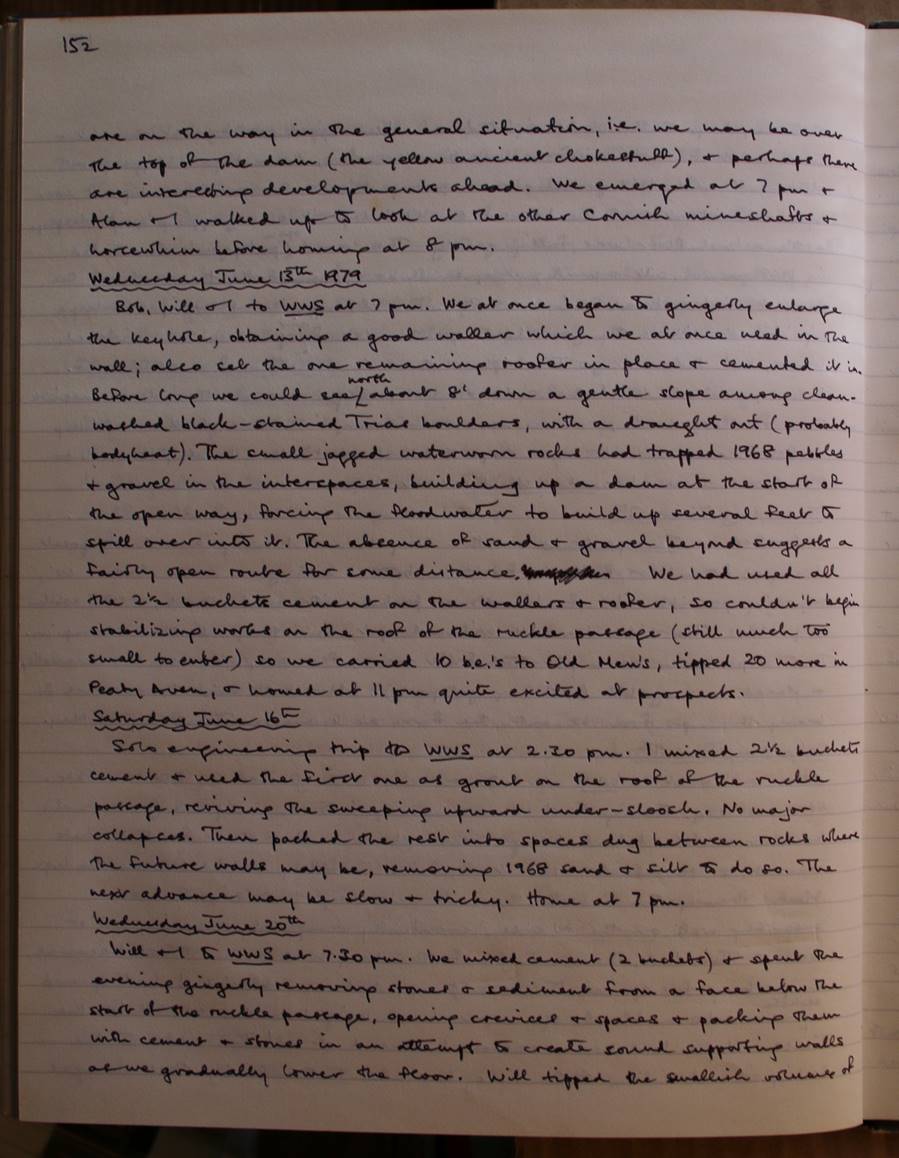 152
are on the way in the general situation, i.e. we may be over
the top of the dam (the yellow ancient chokestuff), & perhaps there
are interesting developments ahead. We emerged at 7 pm &
Alan & I walked up to look at the other Cornish mineshafts &
horsewhim before homing at 8 pm.
Wednesday June 13th 1979
Bob, Will & I to WWS at 7 pm. We at once began to gingerly enlarge
the keyhole, obtaining a good waller which we at once used in the
wall; also set the one remaining roofer in place & cemented it in.
Before long we could see north about 8' down a gentle slope among clean-
washed black-stained Trias boulders, with a draught out (probably
bodyheat). The small jagged waterworn rocks had trapped 1968 pebbles
& gravel in the interspaces, building up a dam at the start of
the open way, forcing the floodwater to build up several feet to
spill over into it. The absence of sand & gravel beyond suggests a
fairly open route for some distance. We had used all
the 2½ buckets cement on the wallers & roofer, so couldn't begin
stabilizing works on the roof of the ruckle passage (still much too
small to enter) so we carried 10 b.e.'s to Old Men's, tipped 20 more in
Peaty Aven, & homed at 11 pm quite excited at prospects.
Saturday June 16th
Solo engineering trip to WWS at 2.30 pm. I mixed 2½ buckets
cement & used the first one as grout on the roof of the ruckle
passage, reviving the sweeping upward under-sloosh. No major
collapses. Then packed the rest into spaces dug between rocks where
the future walls may be, removing 1968 sand & silt to do so. The
next advance may be slow & tricky. Home at 7 pm.
Wednesday June 20th
Will & I to WWS at 7.30 pm. We mixed cement (2 buckets) & spent the
evening gingerly removing stones & sediment from a face below the
start of the ruckle passage, opening crevices & spaces & packing them
with cement & stones in an attempt to create sound supporting walls
as we gradually lower the floor. Will tipped the smallish volumes of